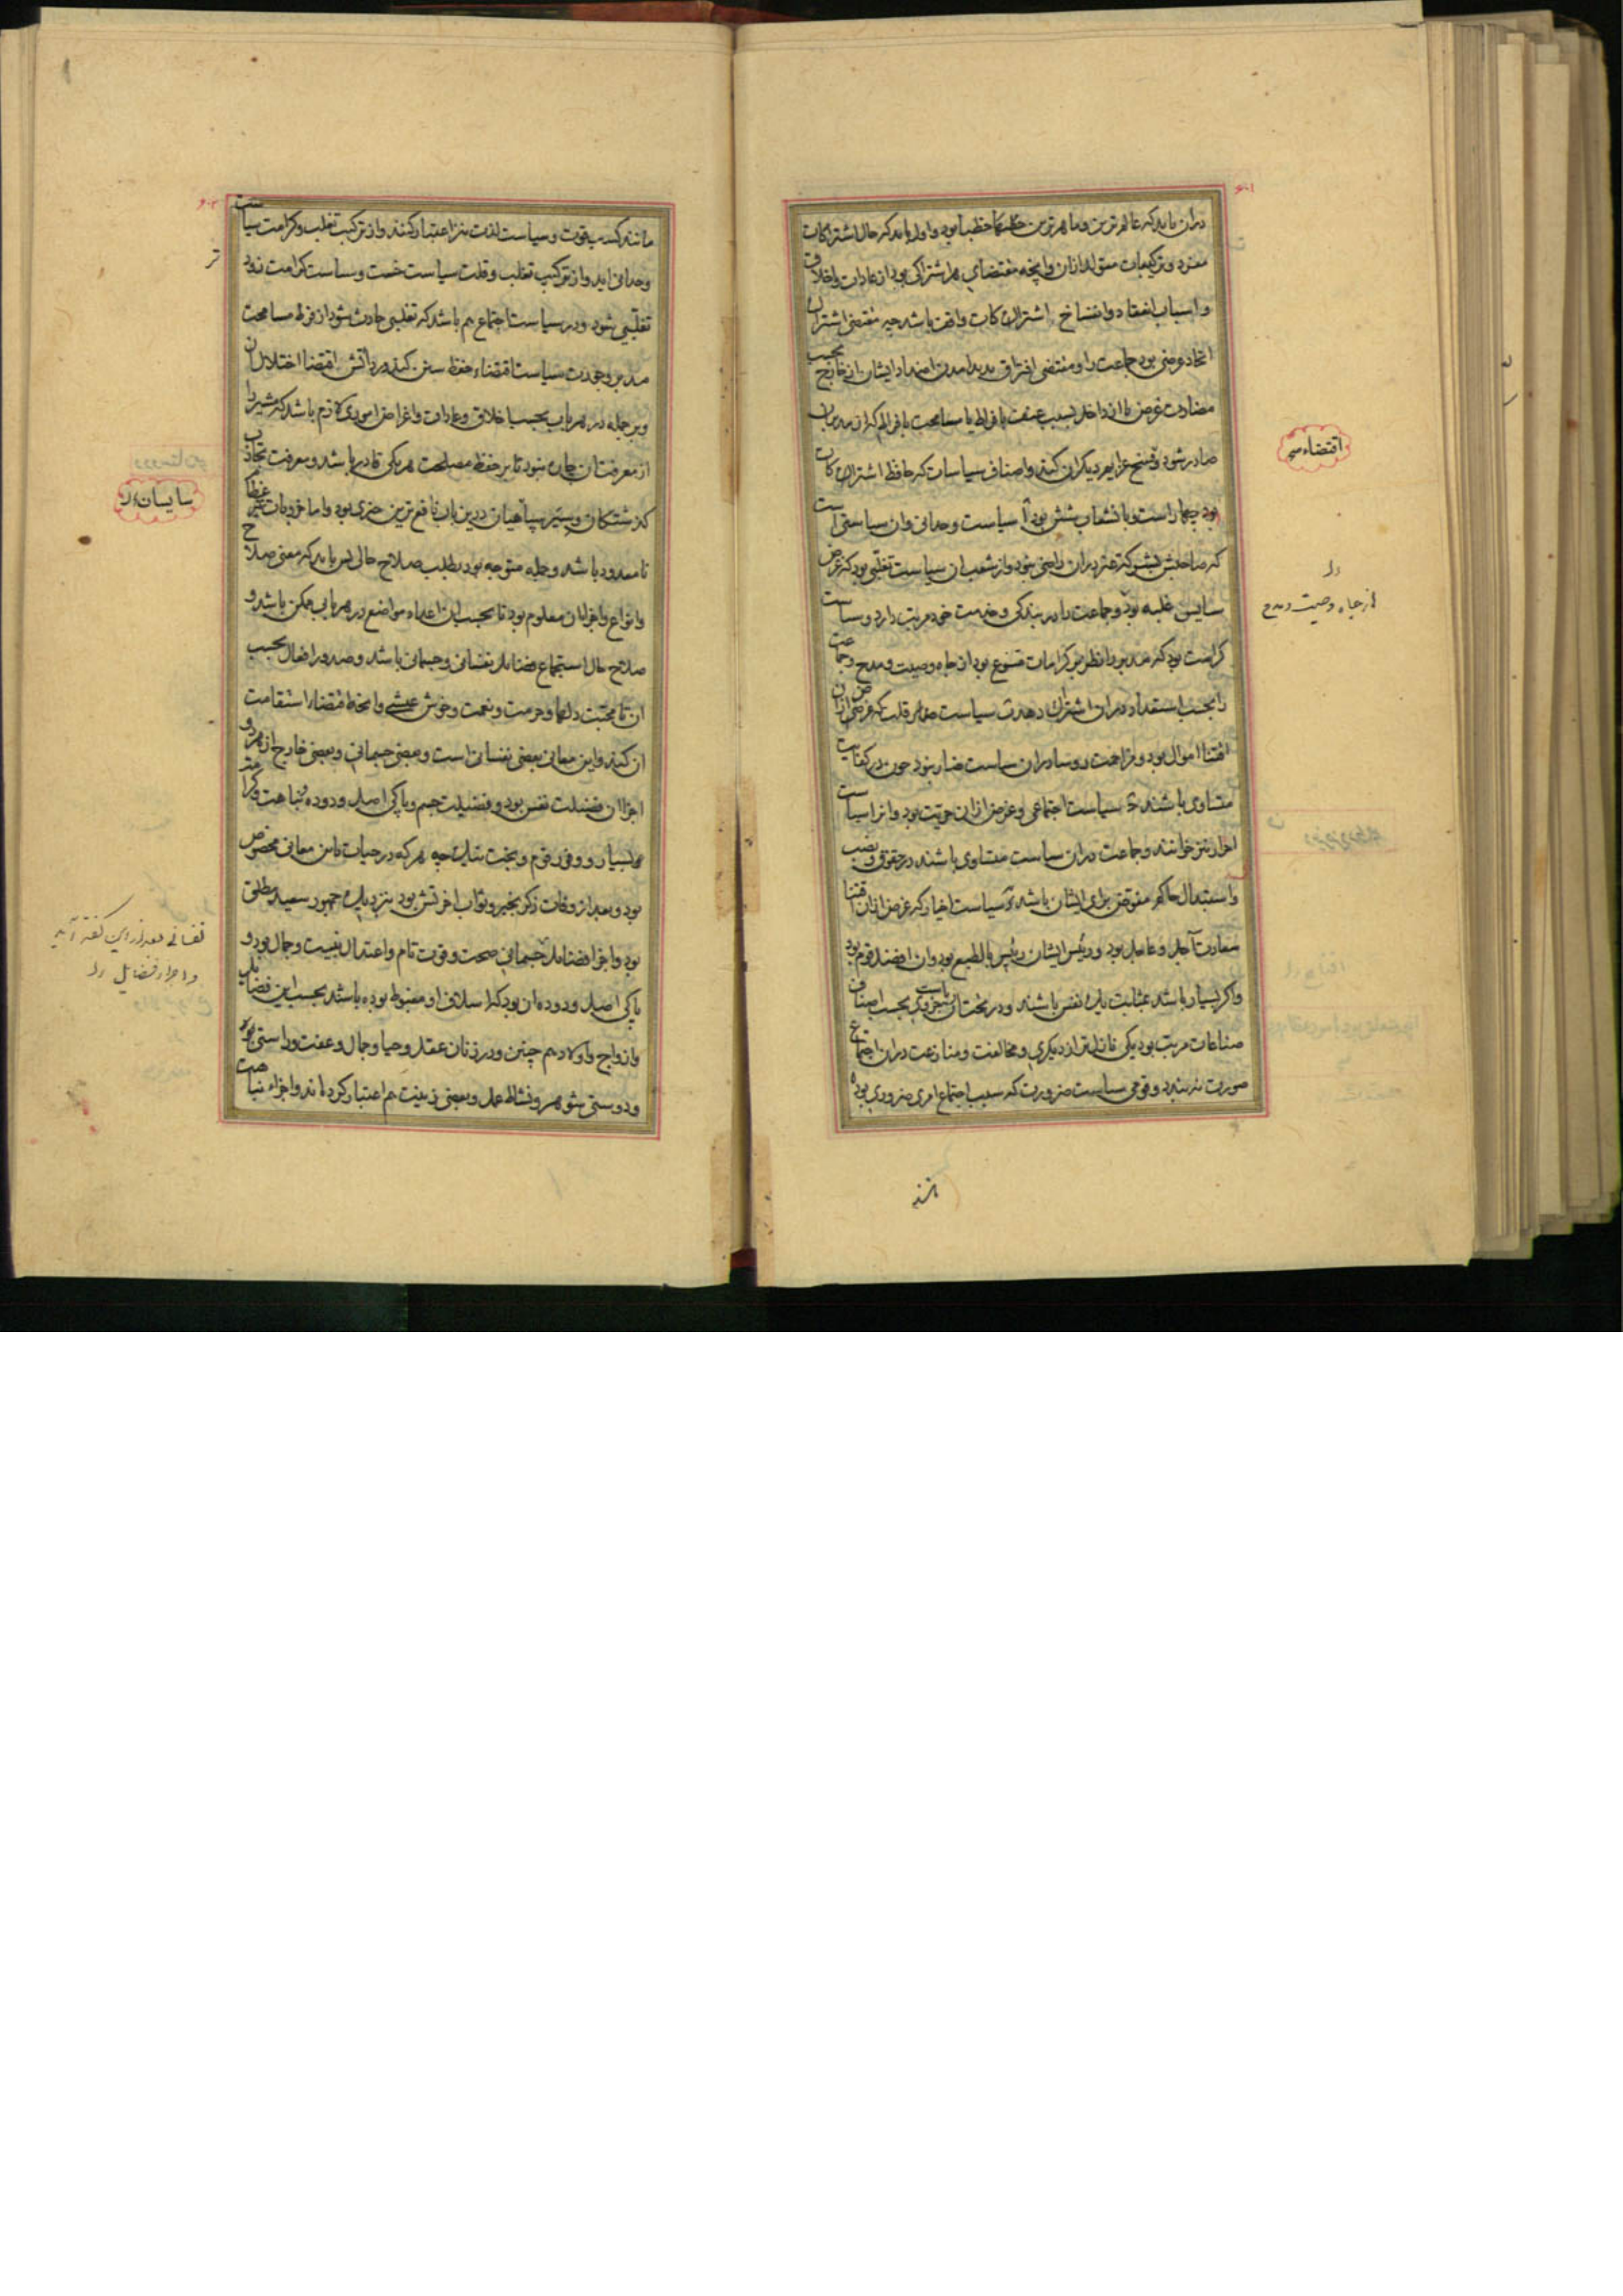 دران باید که عالم‌ترین و ماهرترین حکما و خطبا بود و اول باید که حال اشتراکات
مفرد و ترکیبات متولد ازان و آنچه مقتضای هر اشتراکی بود از عادات و اخلاق
و اسباب انعقاد و انفساخ اشتراکات واقف باشد چه مقتضی اشتراک
اتحاد عرضی بود جماعت را و مقتضی افتراق پدید آمدن اضداد ایشان از خارج بحسب
مضادت غرض یا از داخل بسبب عنف بافراط یا مسامحت بافراط که از مدبران
صادر شود و فسخ عزایم دیگران کند و اصناف سیاسات که حافظ اشتراکات
بود چهار است و بانشعاب شش بود آ سیاست وحدانی و ان سیاستی است
که صاحبش بشرکت غیر دران راضی نبود و از شعب ان سیاست تغلبی بود که غرض
سایس غلبه بود و جماعت را در بندگی و خدمت خود مرتب دارد و سیاست
کرامت بود که مدبر را نظر بر کرامات متنوع بود از جاه و صیت و مدح و جماعت
را بحسب استعداد دران اشتراک دهد ب سیاست قلت که غرض ازان
اقتنا اموال بود و مزاحمت روسا دران سیاست ضار نبود چون در کفایت
متساوی باشند ج سیاست اجتماعی و غرض ازان حریت بود و انرا سیاست
احرار نیز خوانند و جماعت دران سیاست متساوی باشند در حقوق و نصب
و استبدال حاکم مفوض برای ایشان باشد د سیاست اخیار که غرض ازان اقتنا
سعادت آجل و عاجل بود و رئیس ایشان رئیس بالطبع بود و ان افضل قوم بود
و اگر بسیار باشند بمثابت یک نفس باشند و در تحت ان ریاست بحسب اصناف
صناعات مرتب بود یکی نازل‌تر از دیگری و مخالفت و منازعت دران اجتماع
صورت نه بندد و قومی سیاست ضرورت که سبب اجتماع امری ضروری بود
اقتضاء
از جاه و صیت و مدح
مانند کسب قوت و سیاست لذت نیز اعتبار کنند و از ترکیب تغلب و کرامت سیاست
وحدانی اید و از ترکیب تغلب و قلت سیاست خست و سیاست کرامت زود
تغلبی شود و در سیاست اجتماع هم باشد که تغلبی حادث شود از فرط مسامحت
مدبر و جودت سیاست اقتضاء حفظ سنن کند و رداتش اقتضا اختلال ان
و بر جمله در هر باب بحسب اخلاق و عادات و اغراض اموری لازم باشد که مشیر را
از معرفت ان چاره نبود تا بر حفظ مصلحت هر یکی قادر باشد و معرفت تجارب
گذشتگان و سیر سپاهیان درین باب نافع‌ترین چیزی بود و اما خرویات
نامعدود باشد و جمله متوجه بود بطلب صلاح حال پس باید که معنی صلاح
و انواع و اجزا ان معلوم بود تا بحسب ان اعداد مواضع در هر بابی ممکن باشد و
صلاح حال استجماع فضایل نفسانی و جسمانی باشد و صدور افعال بحسب
ان تا محبت دلها و حرمت و نعمت و خوش عیشی و آنچه اقتضاء استقامت
ان کند و این معانی بعضی نفسانی است و بعضی جسمانی و بعضی خارج از هر دو
اجزا ان فضیلت نفس بود و فضیلت جسم و پاکی اصل و دوده و نباهت و کرامت
بسیار و وفور قوم و بخت نیک چه هر که در حیات باین معانی مخصوص
بود و بعد از وفات ذکر بخیر و ثواب اخرتش بود نزدیک جمهور سعید مطلق
بود و اجزا فضایل جسمانی صحت و قوت تام و اعتدال بنیت و جمال بود و
پاکی اصل و دوده ان بود که اسلاف او مغبوط بوده باشند بحسب این فضایل
و ازواج و اولاد هم چنین و در زنان عقل و حیا و جمال و عفت و راستی بود
و دوستی شوهر و نشاط عمل و بعضی زینت هم اعتبار کرده‌اند و اجزاء نباهت
سایسان
و اجزاء فضایل